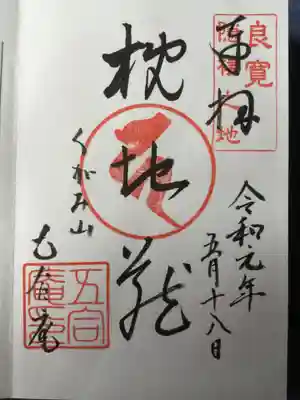 良寛
奉拝
令和元年
五月十八日
枕地蔵
くがみ山
五合庵
五合
庵